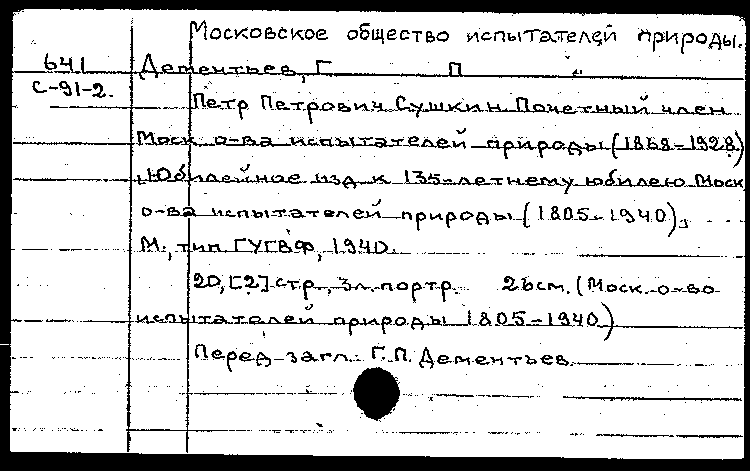 Московское общество испытателей природы.
641
Дементьев, Г. П.
С-91-2.
Петр Петрович Сушкин. Почетный член
Моск о-ва испытателей природы (1868-1928)
„Юбилейное изд к 135-летнему юбилею Моск
о-ва испытателей природы (1805-1940)„
М., тип ГУГВФ, 1940.
20, [2] стр., 3л. портр. 26см. (Моск. о-во
испытателей природы 1805-1940)
Перед загл. Г. П. Дементьев.